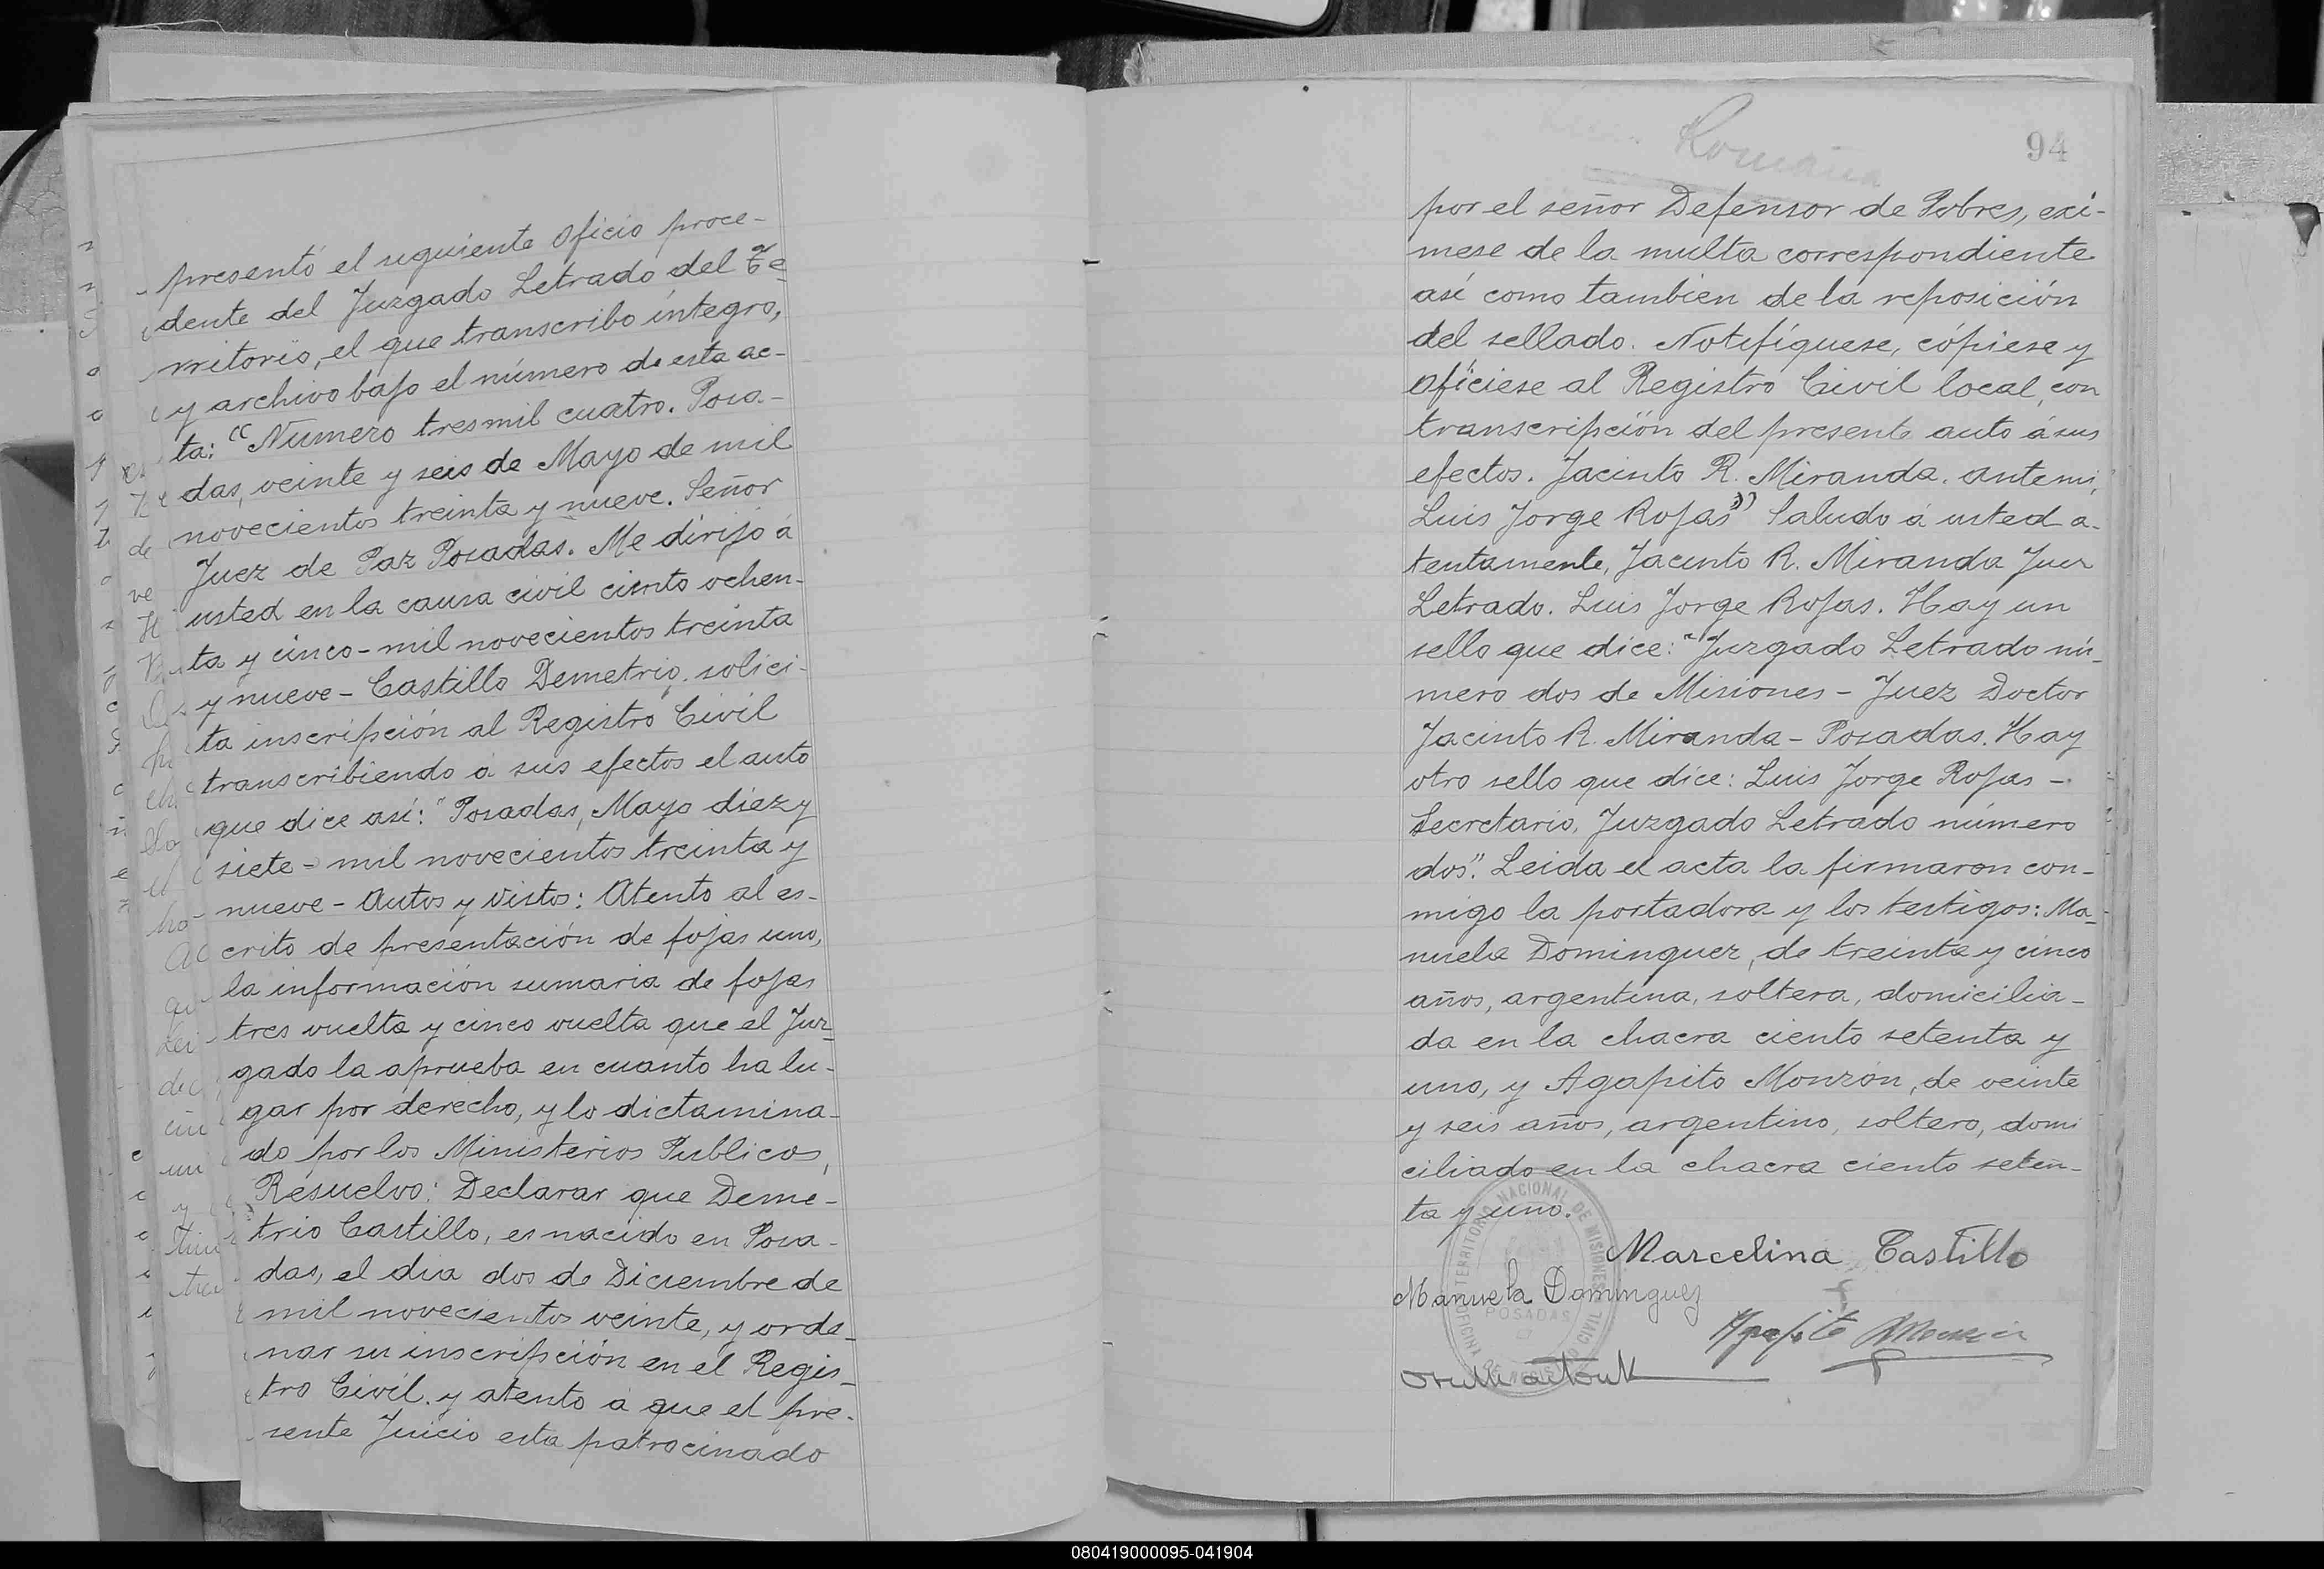 presentó el siguiente oficio proce-
dente del Juzgado Letrado del Te-
rritorio, el que transcribo íntegro,
y archivo bajo el número de esta ac-
ta: "Numero tresmil cuatro. Posa-
das, veinte y seis de Mayo de mil
novecientos treinta y nueve. Señor
Juez de Paz Posadas. Me dirijo á
usted en la causa civil ciento ochen-
ta y cinco - mil novecientos treinta
y nueve - Castillo Demetrio, solici-
ta inscripción al Registro Civil
transcribiendo á sus efectos el auto
que dice así: "Posadas, Mayo diez y
siete - mil novecientos treinta y
nueve - Autos y Vistos: Atento al es-
crito de presentación de fojas uno,
la información sumaria de fojas
tres vuelta y cinco vuelta que el Juz-
gado la aprueba en cuanto ha lu-
gar por derecho, y lo dictamina-
do por los Ministerios Publicos,
Resuelvo: Declarar que Deme-
trio Castillo, es nacido en Posa-
das, el dia dos de Diciembre de
mil novecientos veinte, y orde-
nar su inscripción en el Regis-
tro Civil. y atento á que el pre-
sente Juicio esta patrocinado
Romana
94
por el señor Defensor de Pobres, exi-
mese de la multa correspondiente
así como tambien de la reposición
del sellado. Notifíquese, cópiese y
ofíciese al Registro Civil local, con
transcripción del presente auto á sus
efectos. Jacinto R. Miranda. ante mi,
Luis Jorge Rojas" Saludo á usted a-
tentamente, Jacinto R. Miranda Juez
Letrado. Luis Jorge Rojas. Hay un
sello que dice: "Juzgado Letrado nú-
mero dos de Misiones - Juez Doctor
Jacinto R. Miranda - Posadas. Hay
otro sello que dice: Luis Jorge Rojas -
Secretario, Juzgado Letrado número
dos". Leida el acta la firmaron con-
migo la portadora y los testigos: Ma-
nuela Dominguez, de treinta y cinco
años, argentina, soltera, domicilia-
da en la chacra ciento setenta y
uno, y Agapito Monzón, de veinte
y seis años, argentino, soltero, domi
ciliado en la chacra ciento seten-
ta y uno.
Marcelina Castillo
Manuela Dominguez
TERRITORIO NACIONAL DE MISIONES
POSADAS
080419000095-041904